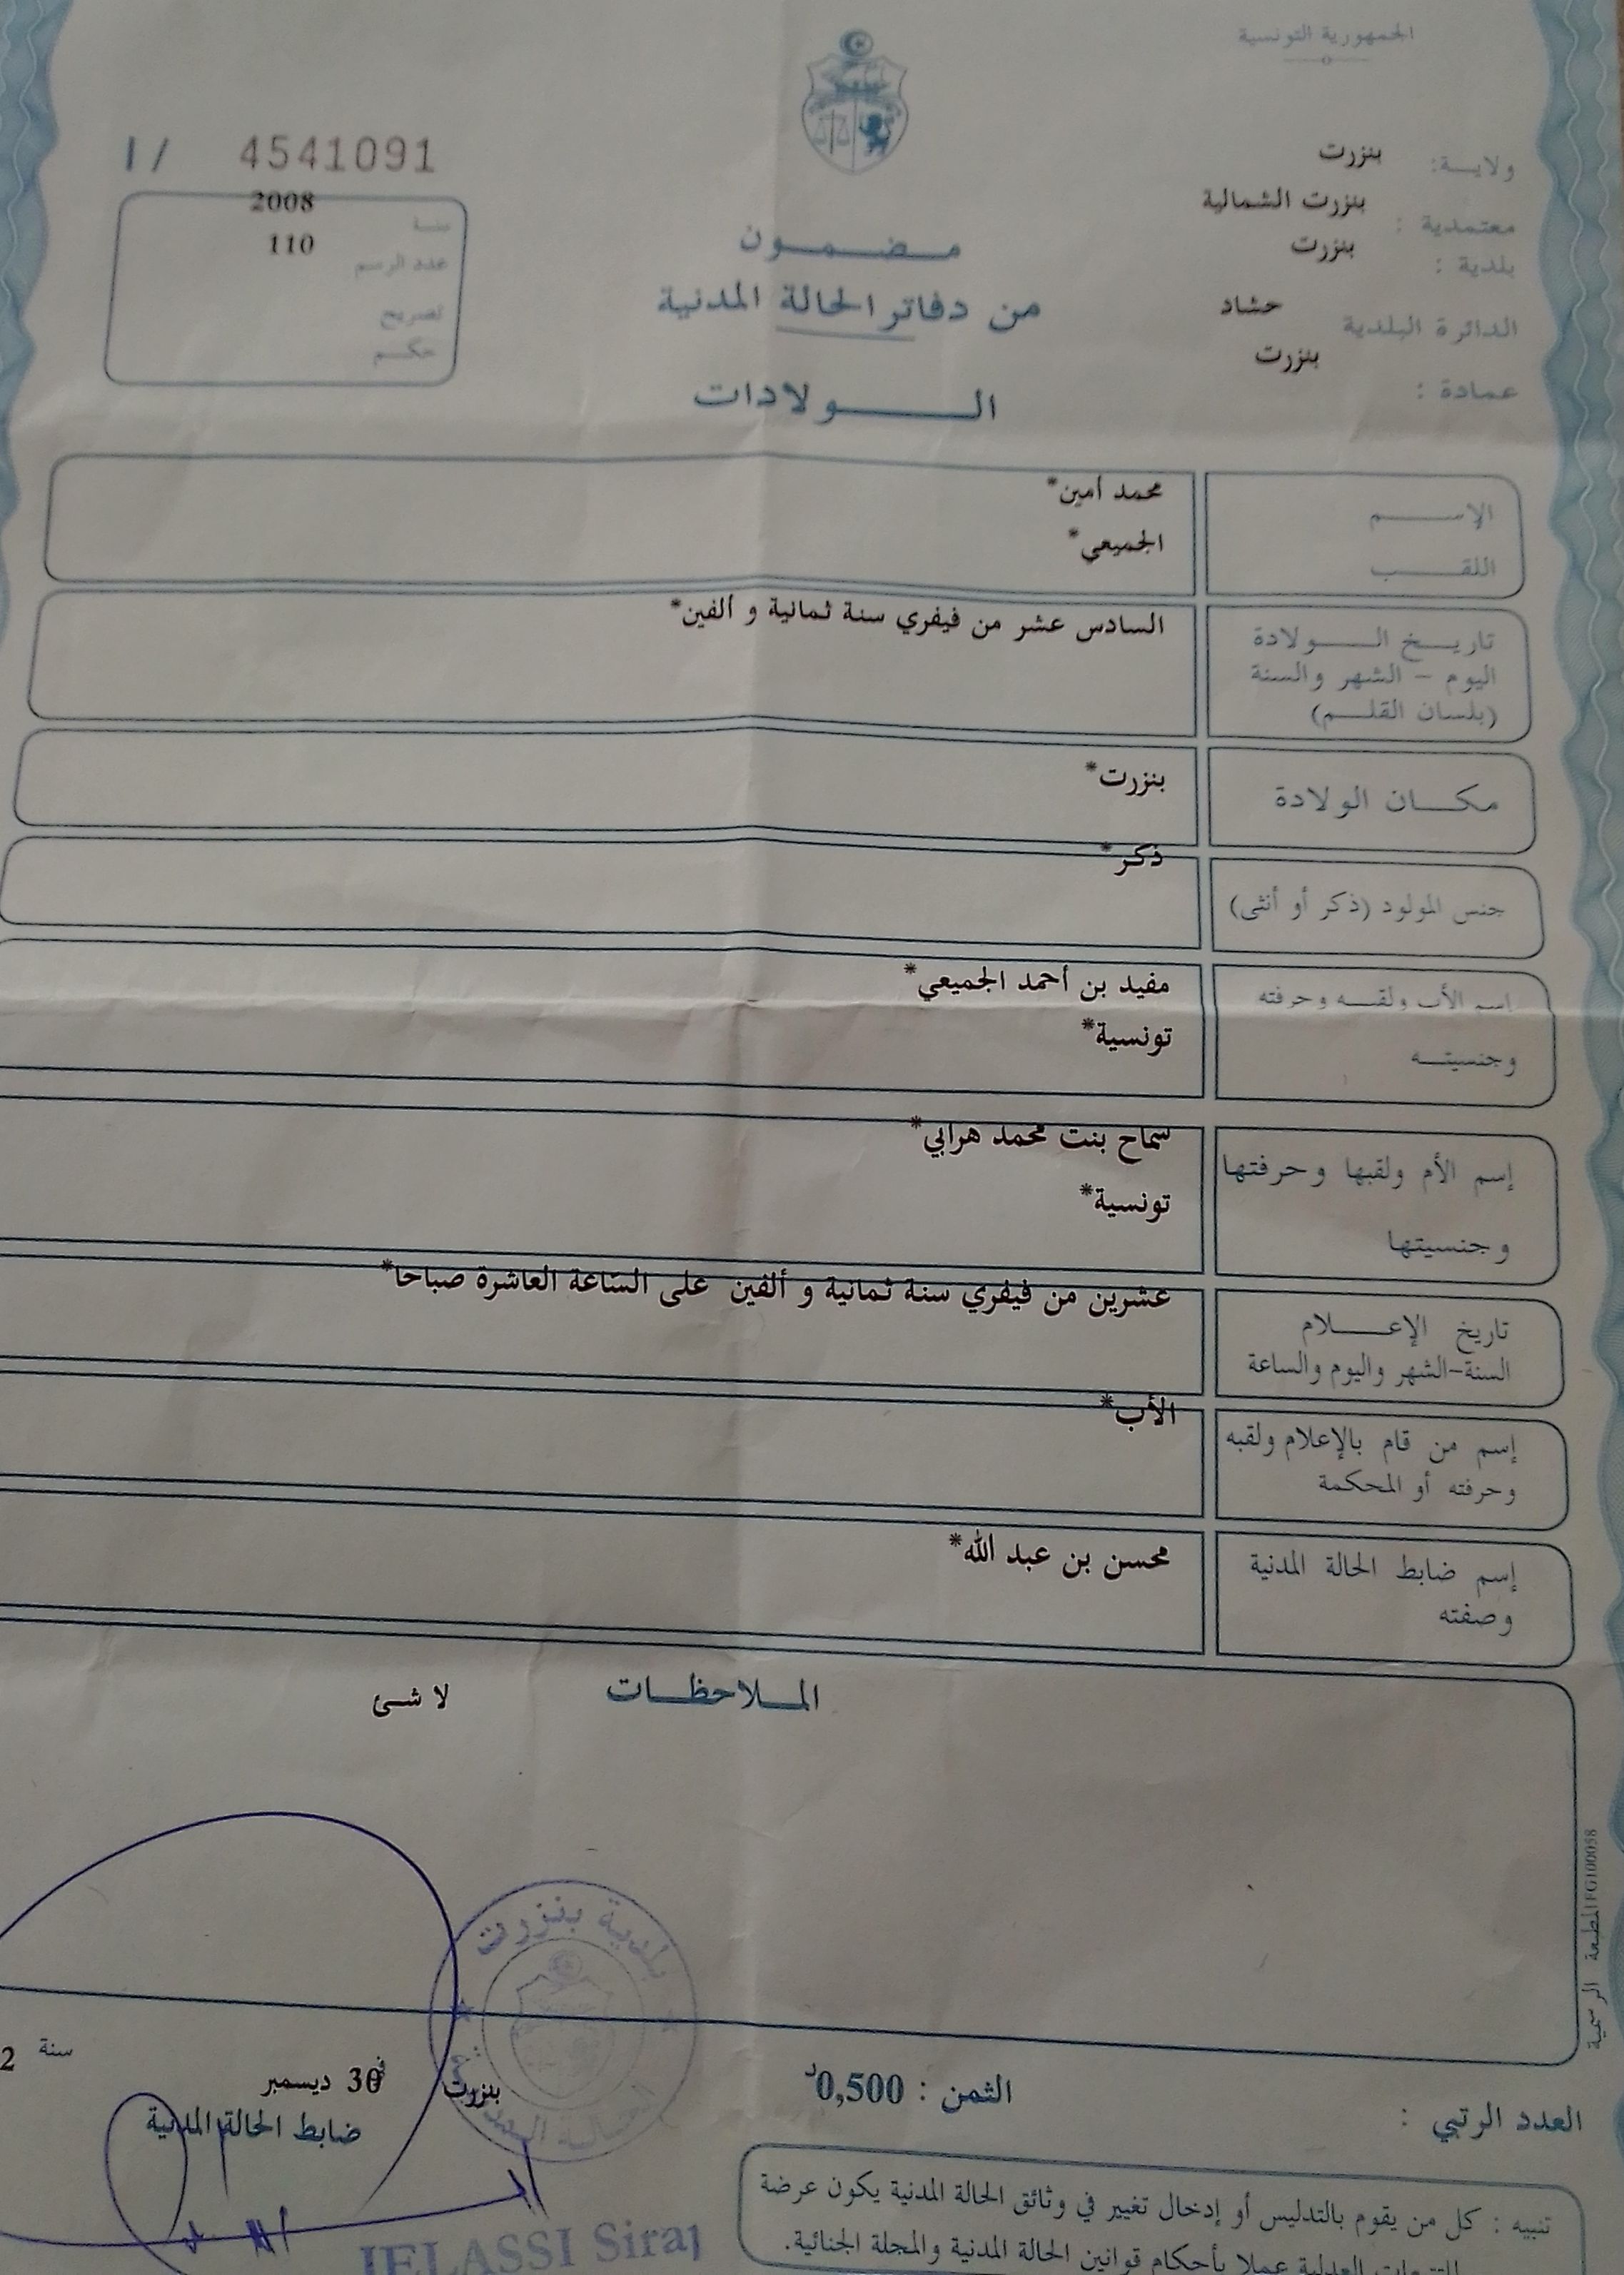 الجمهورية التونسية
ولايـــة: بنزرت
معتمدية : بنزرت الشمالية
بلدية : بنزرت
الدائرة البلدية حشاد
عمادة : بنزرت
1/ 4541091
سنـة 2008
عدد الرسم 110
تصريح
حكــم
مـضـمـون
من دفاتر الحالة المدنية
الـــولادات
الإســـم محمد أمين*
اللقـــب الجميعي*
تاريــخ الــولادة السادس عشر من فيفري سنة ثمانية و ألفين*
اليوم - الشهر والسنة
(بلسان القلــم)
مكــان الولادة بنزرت*
جنس المولود (ذكر أو أنثى) ذكر*
إسم الأب ولقبــه وحرفته مفيد بن أحمد الجميعي*
وجنسيتــه تونسية*
إسم الأم ولقبها وحرفتها سماح بنت محمد هرابي*
وجنسيتها تونسية*
تاريخ الإعــلام عشرين من فيفري سنة ثمانية و ألفين على الساعة العاشرة صباحا*
السنة-الشهر واليوم والساعة
إسم من قام بالإعلام ولقبه الأب*
وحرفته أو المحكمة
إسم ضابط الحالة المدنية محسن بن عبد الله*
وصفته
المــلاحظــات لا شئ
المطبعة الرسمية FG100058
بلدية بنزرت
بنزرت في 30 ديسمبر سنة 2
ضابط الحالة المدنية
الثمن : 0,500د
العدد الرتبي :
تنبيه : كل من يقوم بالتدليس أو إدخال تغيير في وثائق الحالة المدنية يكون عرضة
للتتبعات العدلية عملا بأحكام قوانين الحالة المدنية والمجلة الجنائية.
JELASSI Siraj